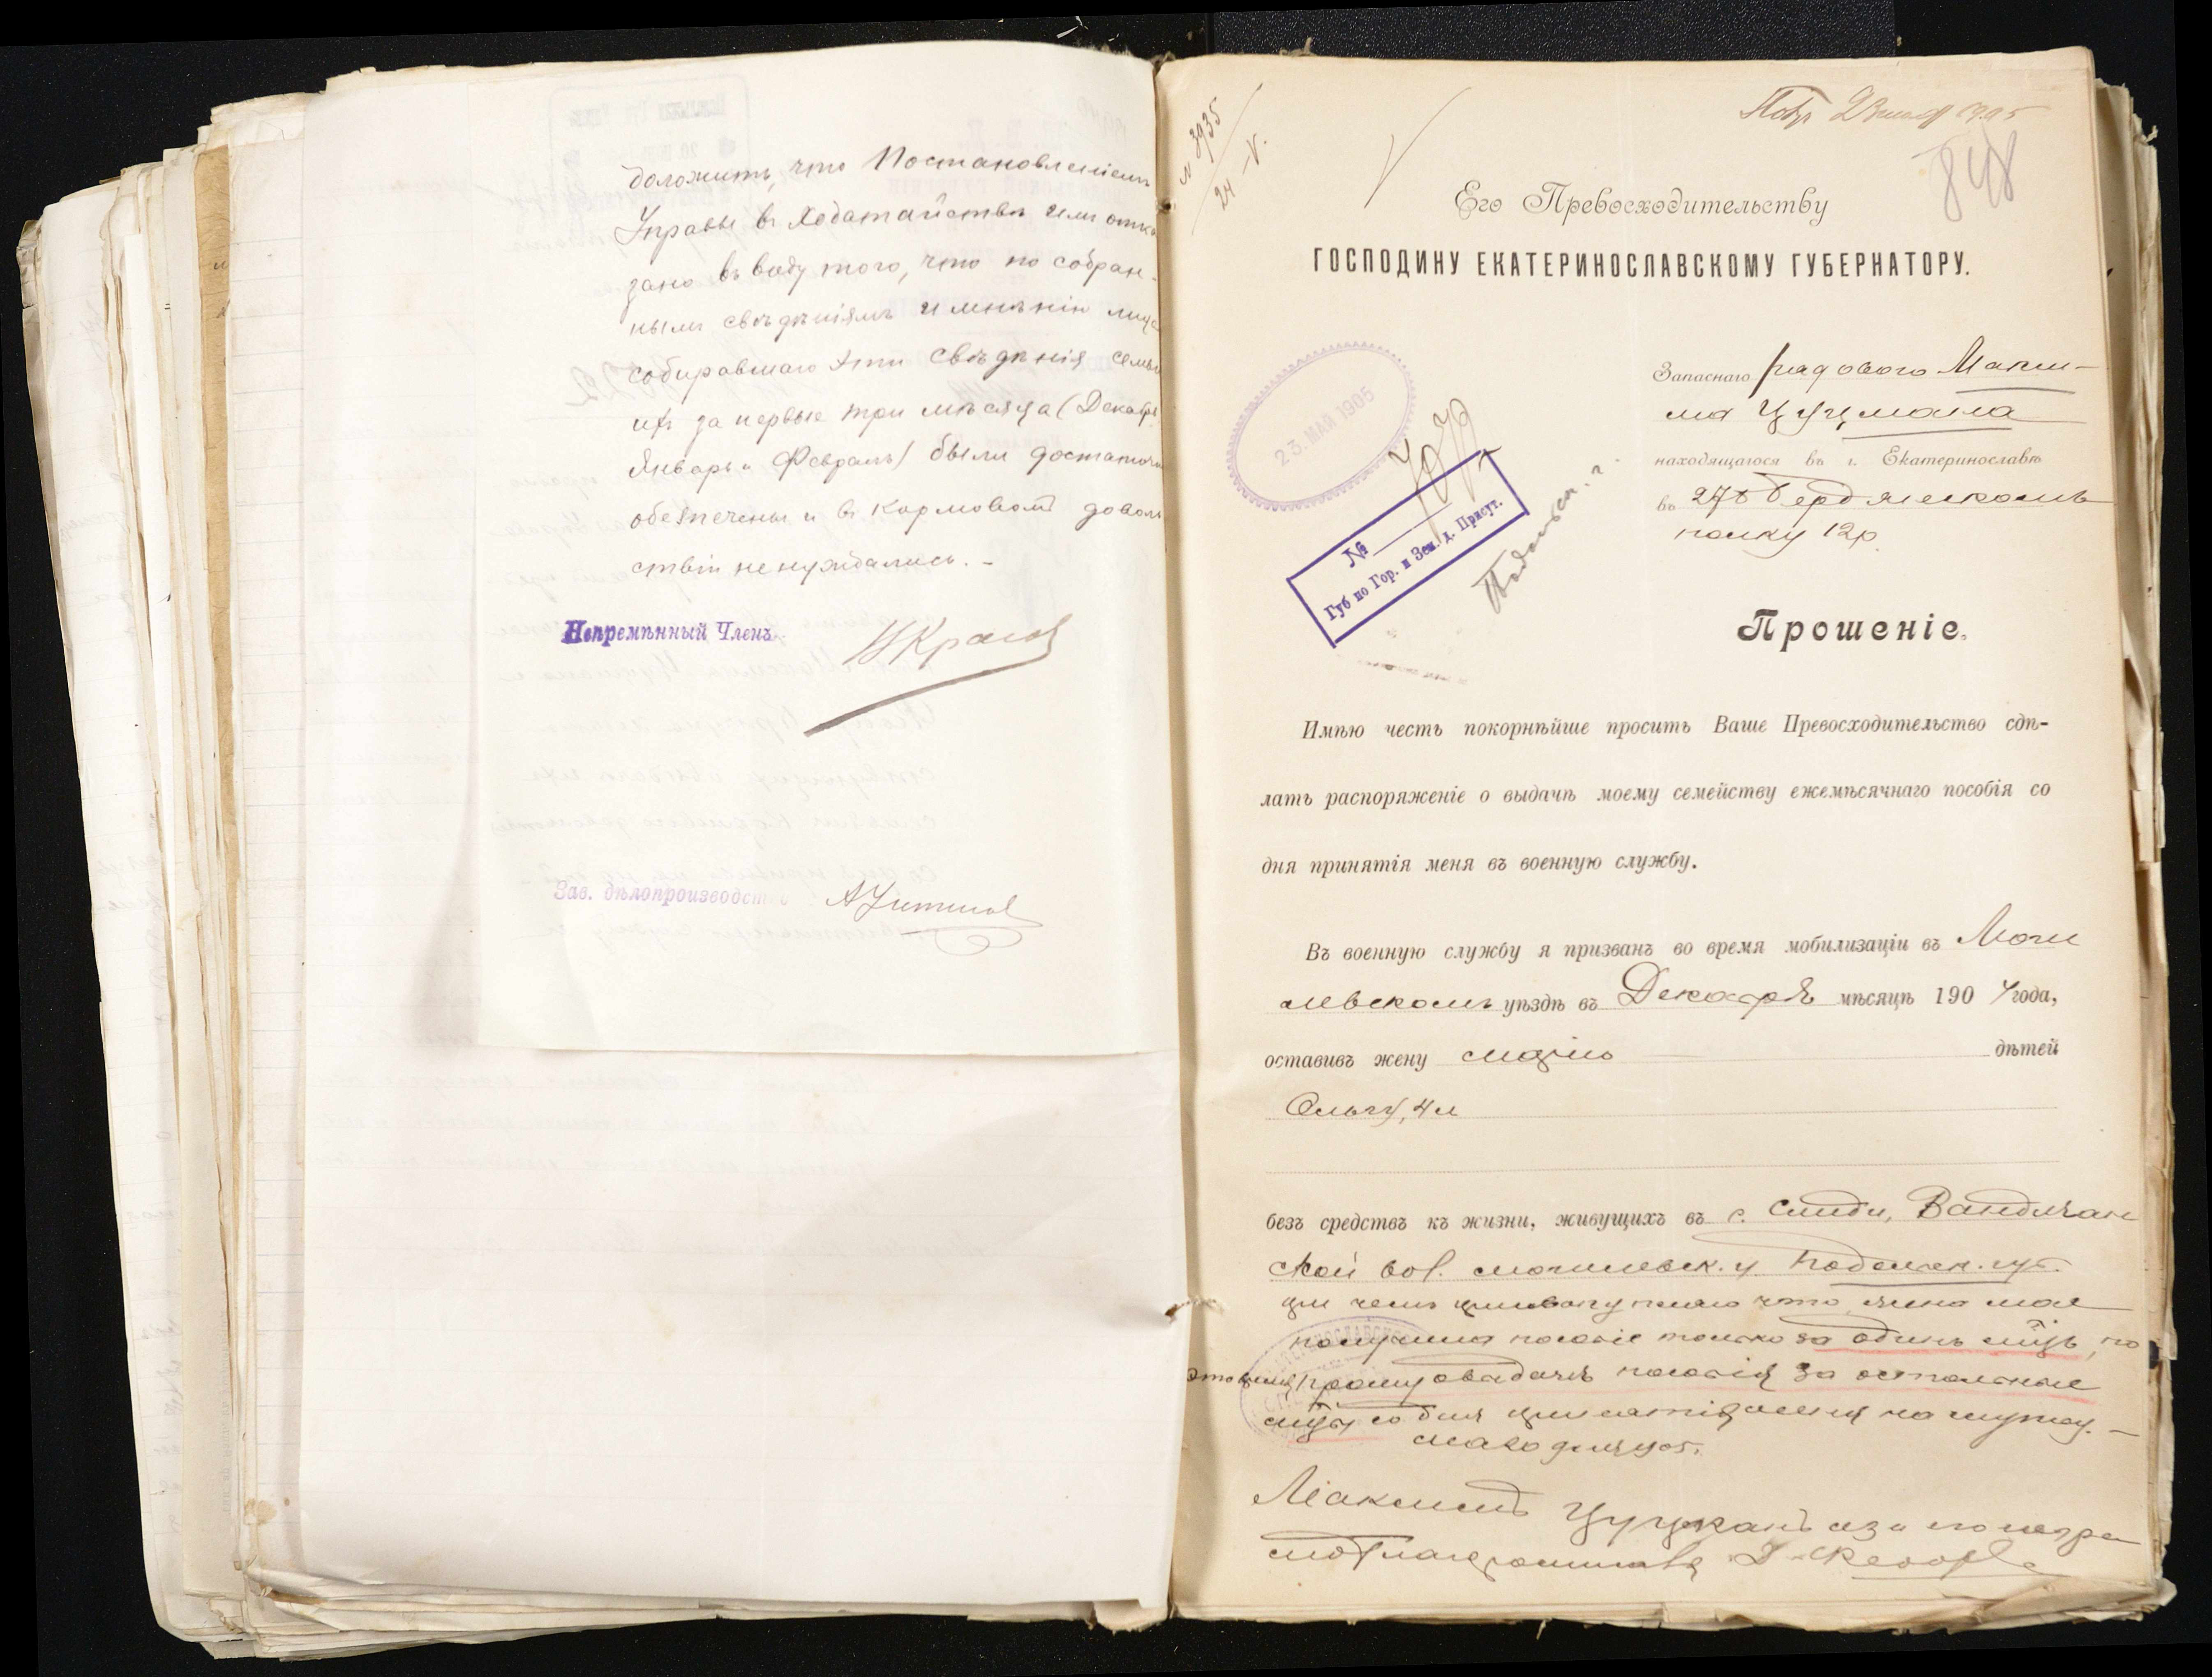 доложить, что Постановленіемъ
Управы въ ходатайствѣ имъ отка
зано въ виду того, что по собран-
нымъ свѣдѣніямъ и мнѣнію лица
собиравшаго эти свѣдѣнія семьи
ихъ за первые три мѣсяца (Декабрь
Январь и Февраль) были достаточно
обезпечены и въ кормовомъ доволь
ствіи не нуждались. -
Непремѣнный Членъ
Зав. дѣлопроизводство
№ 3935
24 - V.
1905
848
Его Превосходительству
ГОСПОДИНУ ЕКАТЕРИНОСЛАВСКОМУ ГУБЕРНАТОРУ.
23 МАЯ 1905
№
Губ по Гор. и Зем. д. Присут.
Подольск. г.
Запаснаго рядового Макси-
ма Цуцмана
находящагося въ г. Екатеринославѣ
въ 278 Бердянскомъ
полку 12 р.
Прошеніе.
Имѣю честь покорнѣйше просить Ваше Превосходительство сдѣ-
лать распоряженіе о выдачѣ моему семейству ежемѣсячнаго пособія со
дня принятія меня въ военную службу.
Въ военную службу я призванъ во время мобилизаціи въ Моги
левскомъ уѣздѣ въ Декабрѣ мѣсяцѣ 1904 года,
оставивъ жену дѣтей
Ольгу, 4 л
безъ средствъ къ жизни, живущихъ въ с.
ской вол. могилевск. у. Подольск. губ.
при чемъ что жена моя
получила пособіе только за одинъ мѣсъ, по
этому прошу выдачѣ пособія за остальные
мѣсы со дня принятія меня на службу. -
Максимъ